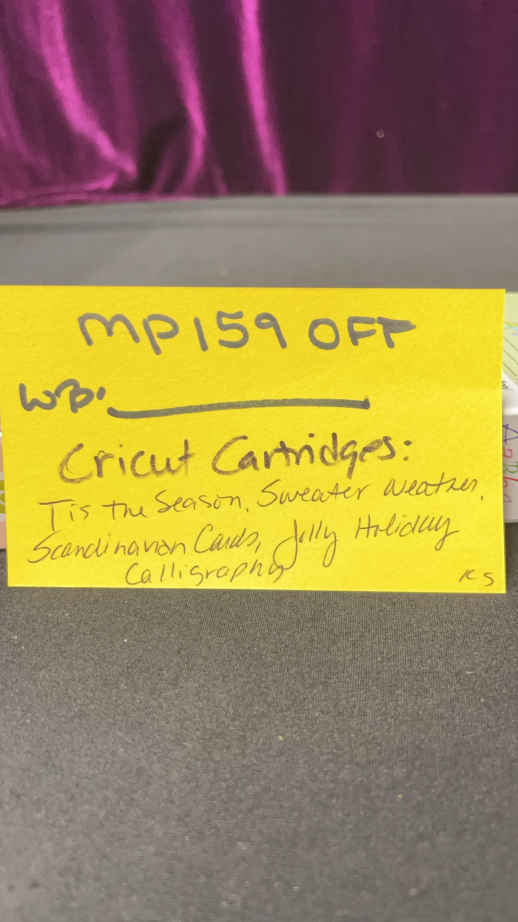 MP159 OFF
WB. ___________
Cricut Cartridges:
Tis the Season, Sweater Weather,
Scandinavian Cards, Jolly Holiday
Calligraphy
KS